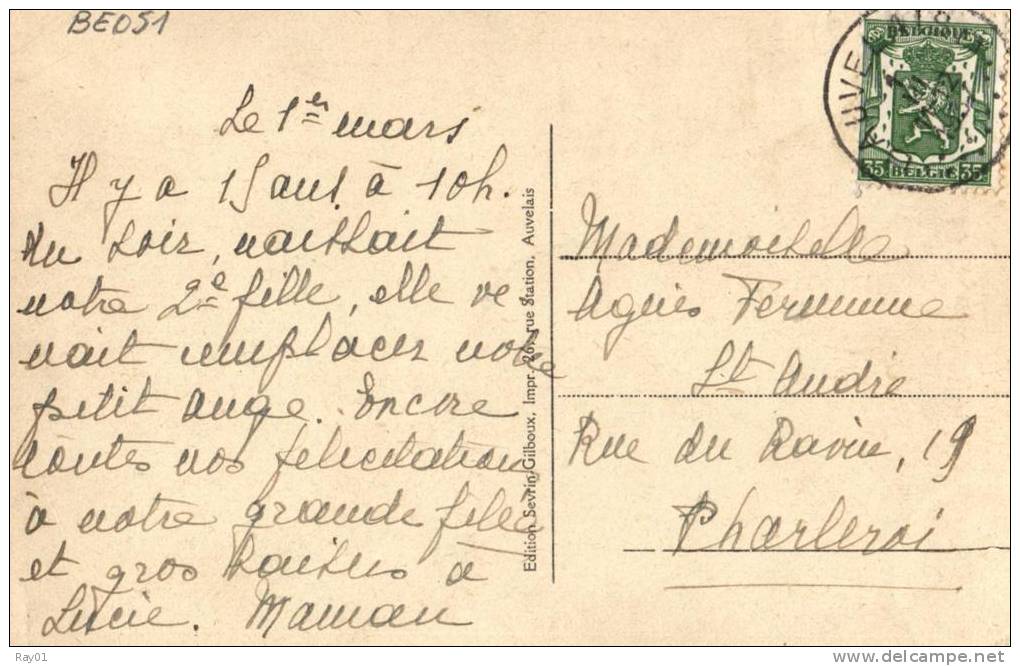 BE051
Le 1er mars
Il y a 15 ans à 10h.
du soir, naissait
notre 2e fille, elle ve
nait remplacer notre
petit ange. Encore
toutes nos félicitations
à notre grande fille
et gros baisers à
Lucie. Maman
Edition Sevrin-Gilboux, Impr. 26, rue Station, Auvelais
AUVELAIS
BELGIQUE
35 BELGIE 35
Mademoiselle
Agnès
St André
Rue du Ravin, 19
Charleroi
Ray01
www.delcampe.net